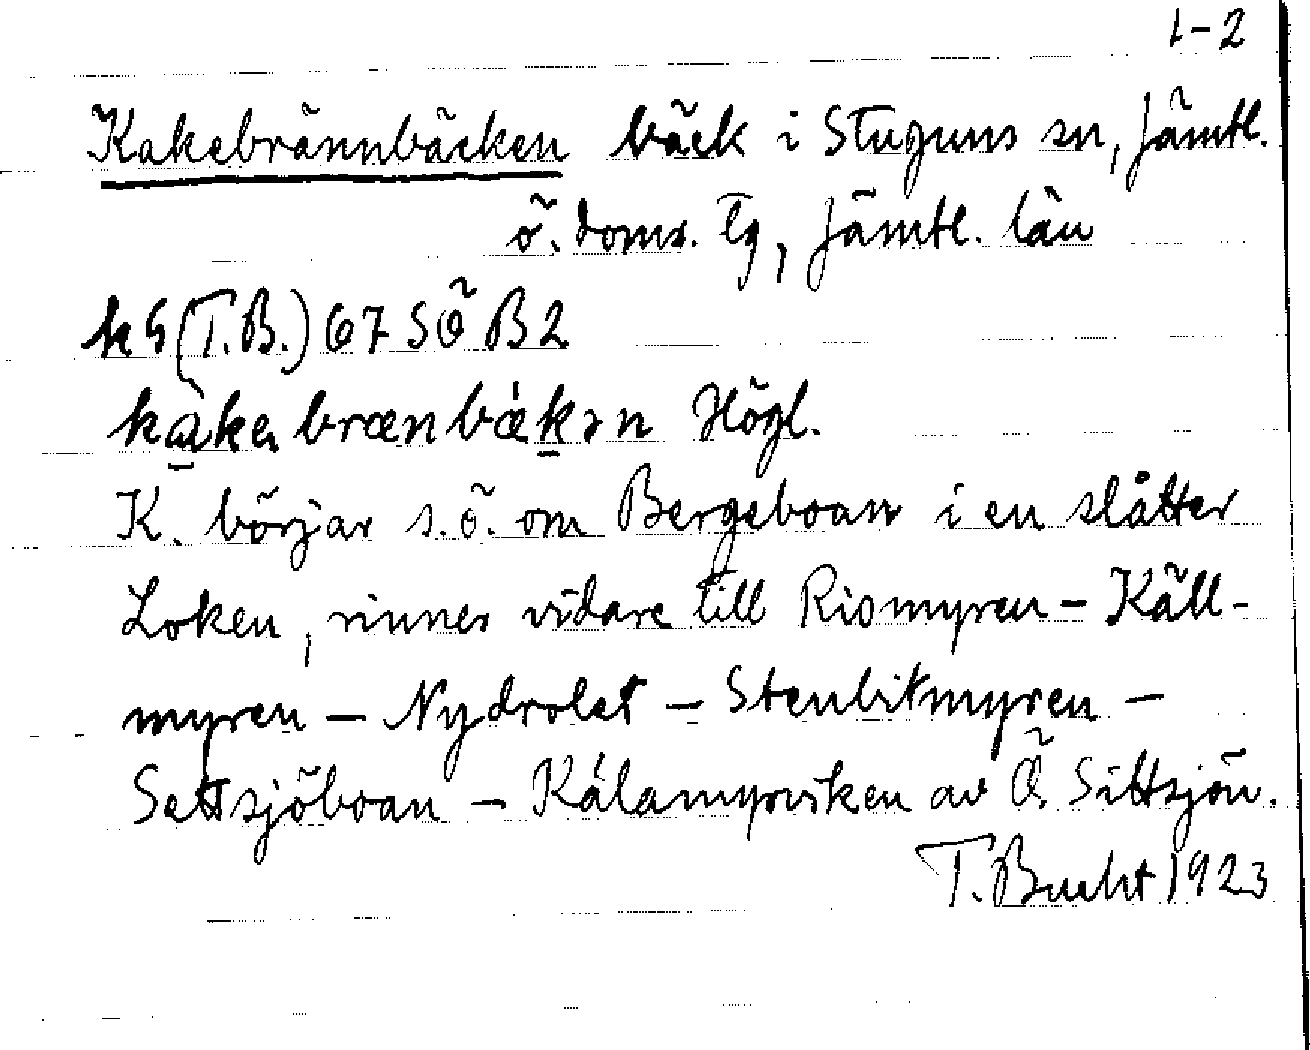 1-2
Kakebrännbäcken bäck i Stuguns sn, Jämtl.
ö. doms. tg, Jämtl. län
kS (T.B.) 67 SÖ B2
Högl.
K. börjar s.ö. om Bergeboan i en slåtter
Loken, rinner vidare till Rismyren - Käll-
myren - Nydrolet - Stenbitmyren -
Settsjöboan - Kälamyrviken av Ö. Sittsjön.
T. Bucht 1923